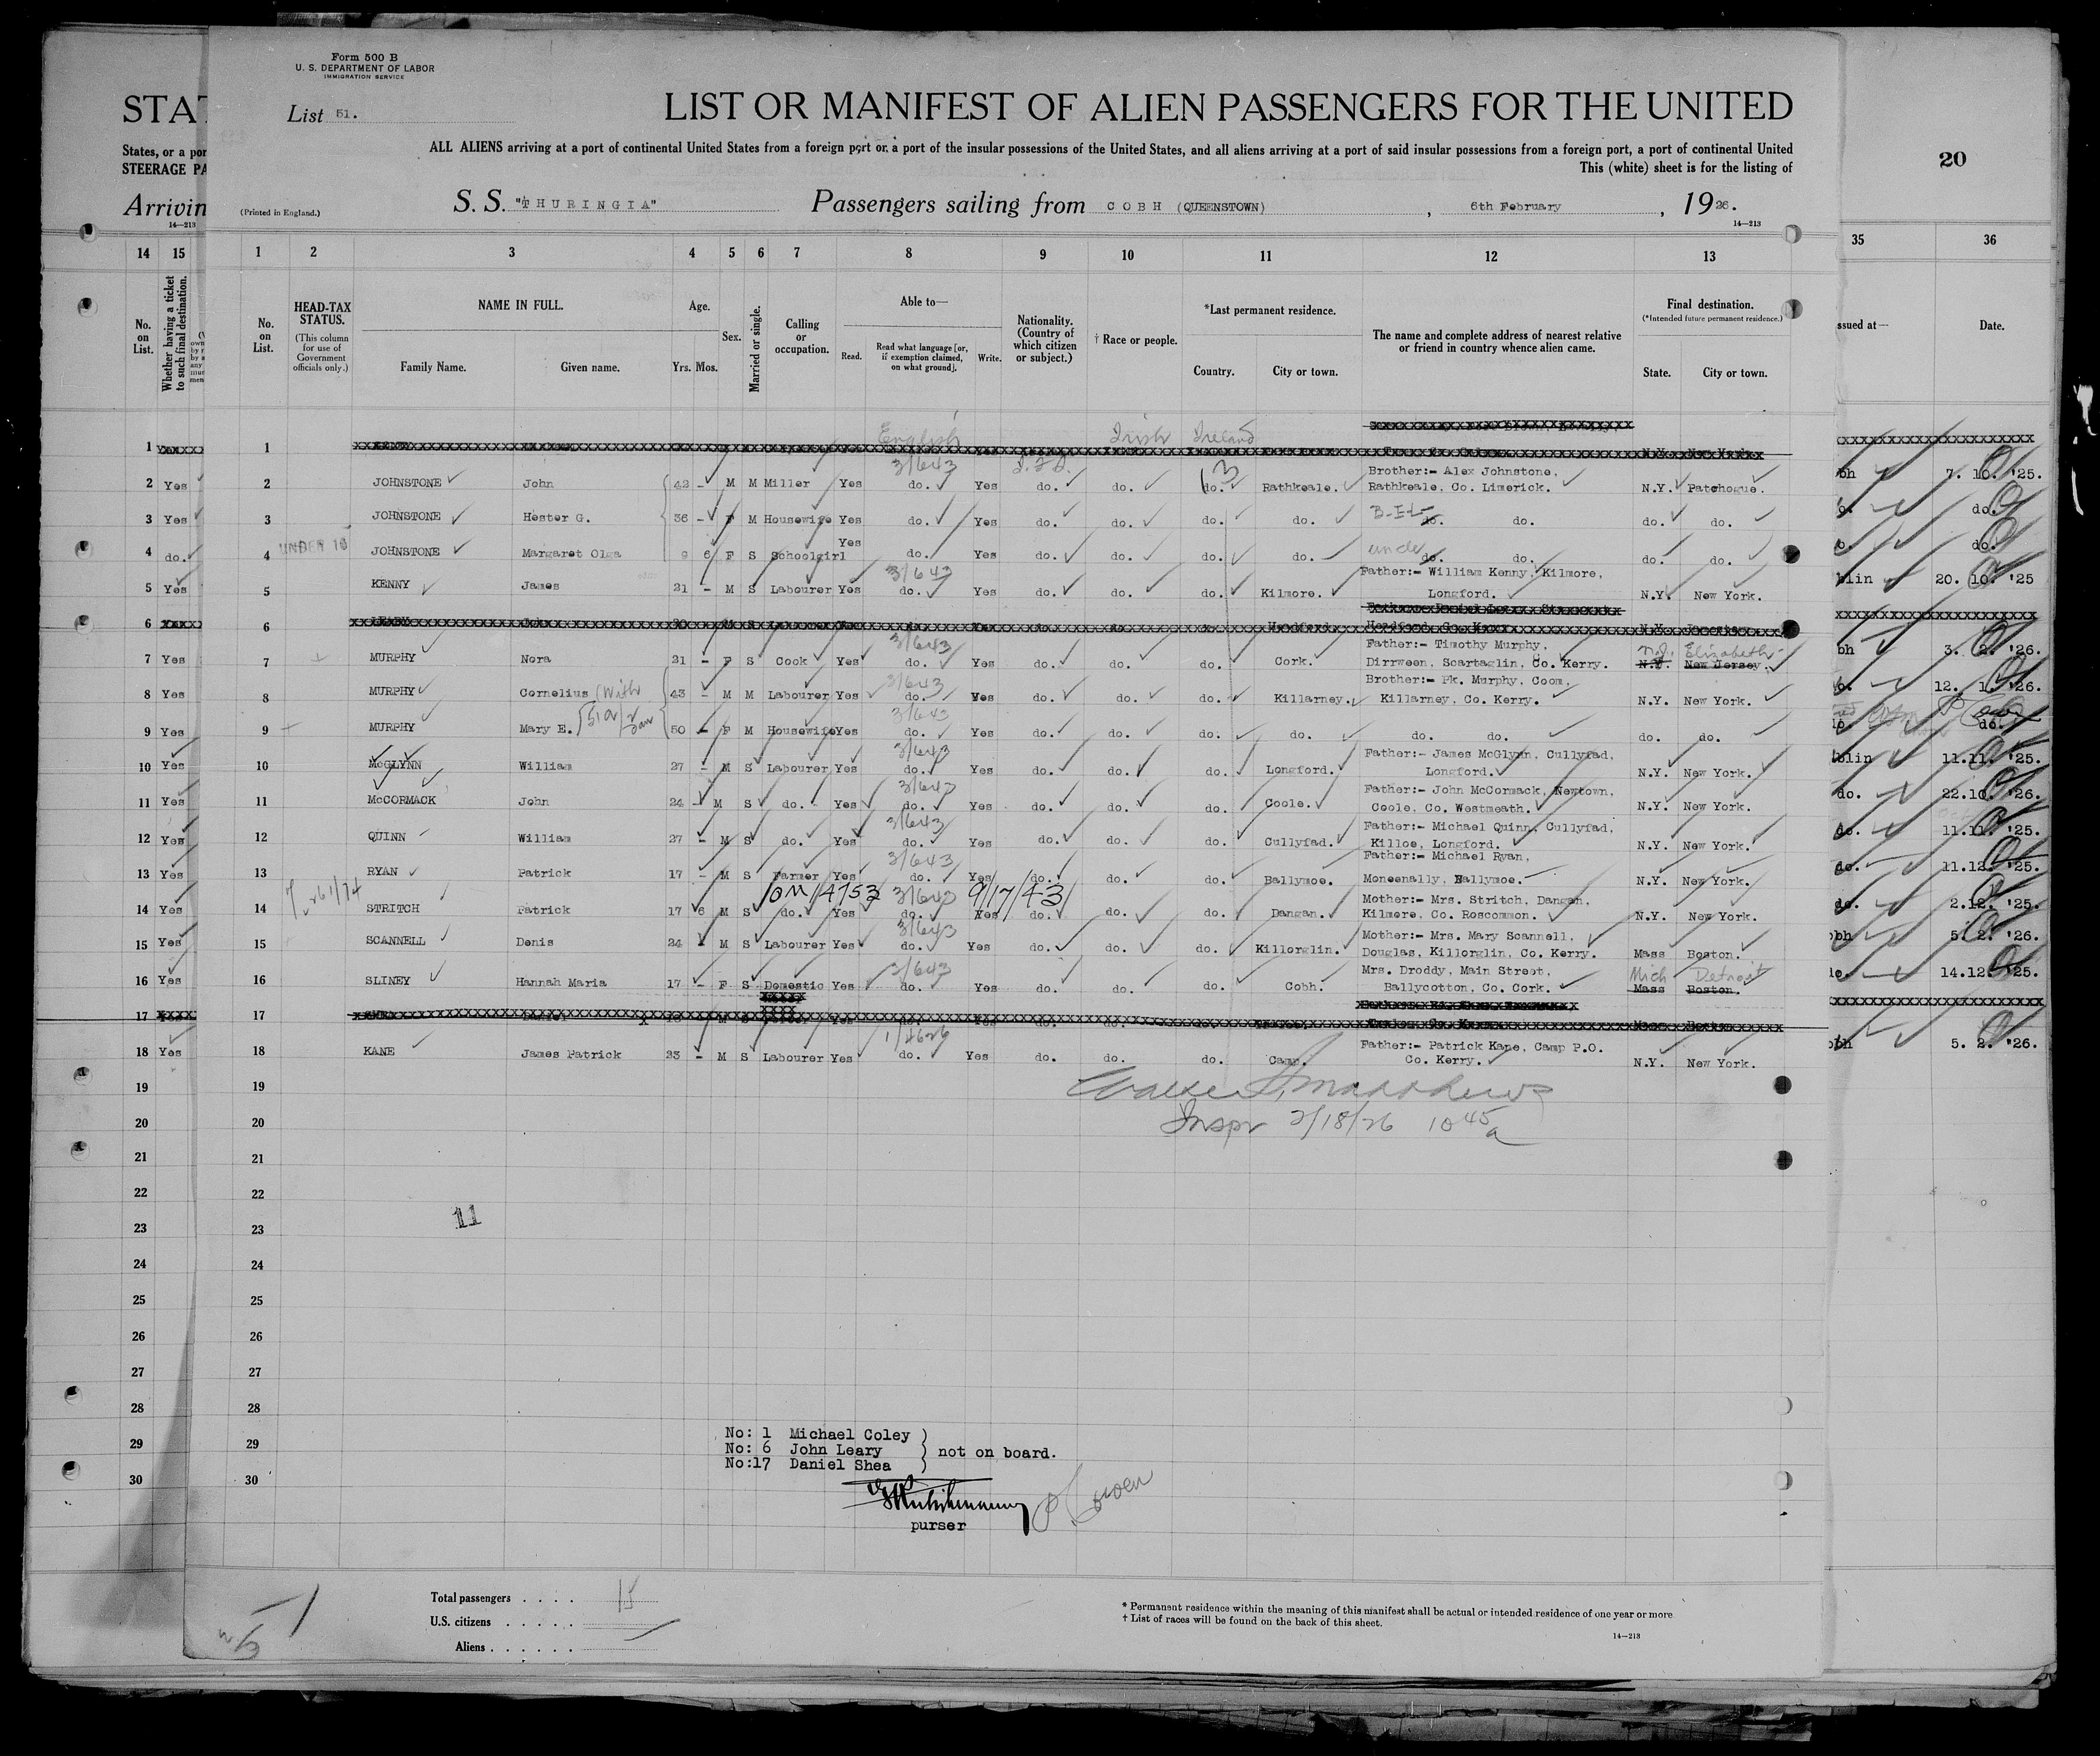 Form 500 B
U. S. DEPARTMENT OF LABOR
IMMIGRATION SERVICE
STAT
List 51.
LIST OR MANIFEST OF ALIEN PASSENGERS FOR THE UNITED
States, or a por
STEERAGE PA
ALL ALIENS arriving at a port of continental United States from a foreign port or a port of the insular possessions of the United States, and all aliens arriving at a port of said insular possessions from a foreign port, a port of continental United
This (white) sheet is for the listing of
20
Arrivin
14—213
(Printed in England.)
S. S. "THURINGIA" Passengers sailing from COBH (QUEENSTOWN), 6th February, 1926.
14—213
14 15 1 2 3 4 5 6 7 8 9 10 11 12 13 35 36
No. on List.
Whether having a ticket to such final destination.
No. on List.
HEAD-TAX STATUS.
(This column for use of Government officials only.)
NAME IN FULL.
Family Name. Given name.
Age.
Yrs. Mos.
Sex.
Married or single.
Calling or occupation.
Able to—
Read. Read what language [or, if exemption claimed, on what ground]. Write.
Nationality. (Country of which citizen or subject.)
† Race or people.
*Last permanent residence.
Country. City or town.
The name and complete address of nearest relative or friend in country whence alien came.
Final destination.
(*Intended future permanent residence.)
State. City or town.
ssued at—
Date.
English Irish Ireland
1 1 N.Y. New York
3/643 13 Brother:- Alex Johnstone,
2 Yes 2 JOHNSTONE John 42 - M M Miller Yes do. Yes do. do. do. Rathkeale. Rathkeale, Co. Limerick. N.Y. Patchogue. bh 7. 10. '25.
3 Yes 3 JOHNSTONE Hester G. 36 - F M Housewife Yes do. Yes do. do. do. do. B-I-L do. do. do. do. do.
4 do. UNDER 16 4 JOHNSTONE Margaret Olga 9 6 F S Schoolgirl Yes do. Yes do. do. do. do. uncle do. do. do. do. do.
3/643 Father:- William Kenny, Kilmore,
5 Yes 5 KENNY James 21 - M S Labourer Yes do. Yes do. do. do. Kilmore. Longford. N.Y. New York. blin 20. 10. '25
6 6 LEARY John M S Headford Headford, Co. Kerry N.Y.
3/643 Father:- Timothy Murphy, N.J. Elizabeth
7 Yes 7 MURPHY Nora 21 - F S Cook Yes do. Yes do. do. do. Cork. Dirrween, Scartaglin, Co. Kerry. N.Y. New Jersey. bh 3. 2. '26.
3/643 Brother:- Pk. Murphy, Coom,
8 Yes 8 MURPHY Cornelius (With 43 - M M Labourer Yes do. Yes do. do. do. Killarney. Killarney, Co. Kerry. N.Y. New York. o. 12. 1. '26.
3/643
9 Yes 9 MURPHY Mary E. 50 - F M Housewife Yes do. Yes do. do. do. do. do. do. do. do. do. do.
3/643 Father:- James McGlynn, Cullyfad,
10 Yes 10 McGLYNN William 27 - M S Labourer Yes do. Yes do. do. do. Longford. Longford. N.Y. New York. blin 11.11. '25.
3/643 Father:- John McCormack, Newtown,
11 Yes 11 McCORMACK John 24 - M S do. Yes do. Yes do. do. do. Coole. Coole, Co. Westmeath. N.Y. New York. do. 22.10. '26.
3/643 Father:- Michael Quinn, Cullyfad,
12 Yes 12 QUINN William 27 - M S do. Yes do. Yes do. do. do. Cullyfad. Killoe, Longford. N.Y. New York. do. 11.11. '25.
3/643 Father:- Michael Ryan,
13 Yes 13 RYAN Patrick 17 - M S Farmer Yes do. Yes do. do. do. Ballymoe. Moneenally, Ballymoe. N.Y. New York. do. 11.12. '25.
3/643 9/17/43 Mother:- Mrs. Stritch, Dangan,
14 Yes 14 STRITCH Patrick 17 6 M S do. Yes do. Yes do. do. do. Dangan. Kilmore, Co. Roscommon. N.Y. New York. do. 2.12. '25.
3/643 Mother:- Mrs. Mary Scannell,
15 Yes 15 SCANNELL Denis 24 - M S Labourer Yes do. Yes do. do. do. Killorglin. Douglas, Killorglin, Co. Kerry. Mass Boston. obh 5. 2. '26.
3/643 Mrs. Droddy, Main Street, Mich Detroit
16 Yes 16 SLINEY Hannah Maria 17 - F S Domestic Yes do. Yes do. do. do. Cobh. Ballycotton, Co. Cork. Mass Boston. do. 14.12. '25.
17 17 Daniel M S Mass Boston
Father:- Patrick Kane, Camp P.O.
18 Yes 18 KANE James Patrick 23 - M S Labourer Yes do. Yes do. do. do. Camp. Co. Kerry. N.Y. New York. obh 5. 2. '26.
19 19
Inspr 2/18/26 10 45 a
20 20
21 21
22 22
11
23 23
24 24
25 25
26 26
27 27
28 28
29 29
30 30
No: 1 Michael Coley
No: 6 John Leary
No:17 Daniel Shea
not on board.
purser
Total passengers . . . . 15
U.S. citizens . . . . .
Aliens . . . . . .
* Permanent residence within the meaning of this manifest shall be actual or intended residence of one year or more
† List of races will be found on the back of this sheet.
14—213